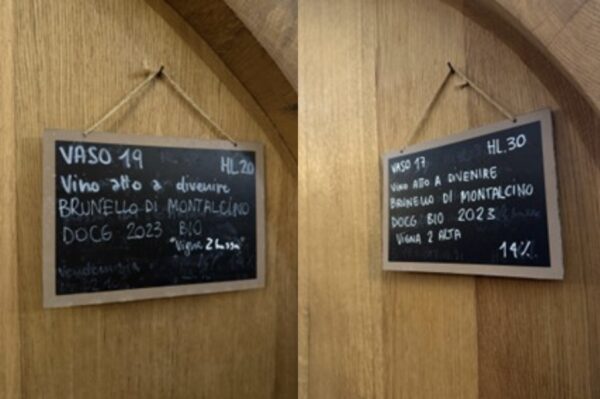 VASO 19 HL.20
Vino atto a divenire
BRUNELLO DI MONTALCINO
DOCG 2023 BIO
"Vigna 2
VASO 17 HL.30
VINO ATTO A DIVENIRE
BRUNELLO DI MONTALCINO
DOCG BIO 2023
VIGNA 2 ALTA
14%